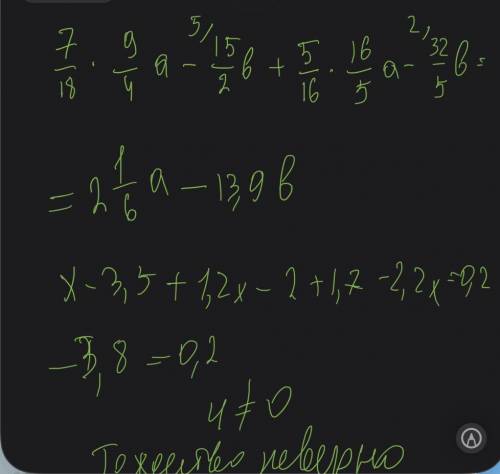 5/ 2/
7/18 · 9/4 а - 15/2 в + 5/16 · 16/5 а - 32/5 в =
= 2 1/6 а - 13,9 в
х - 3,5 + 1,2х - 2 + 1,7 - 2,2х = 0,2
- 3,8 = 0,2
4 ≠ 0
Тождество неверно